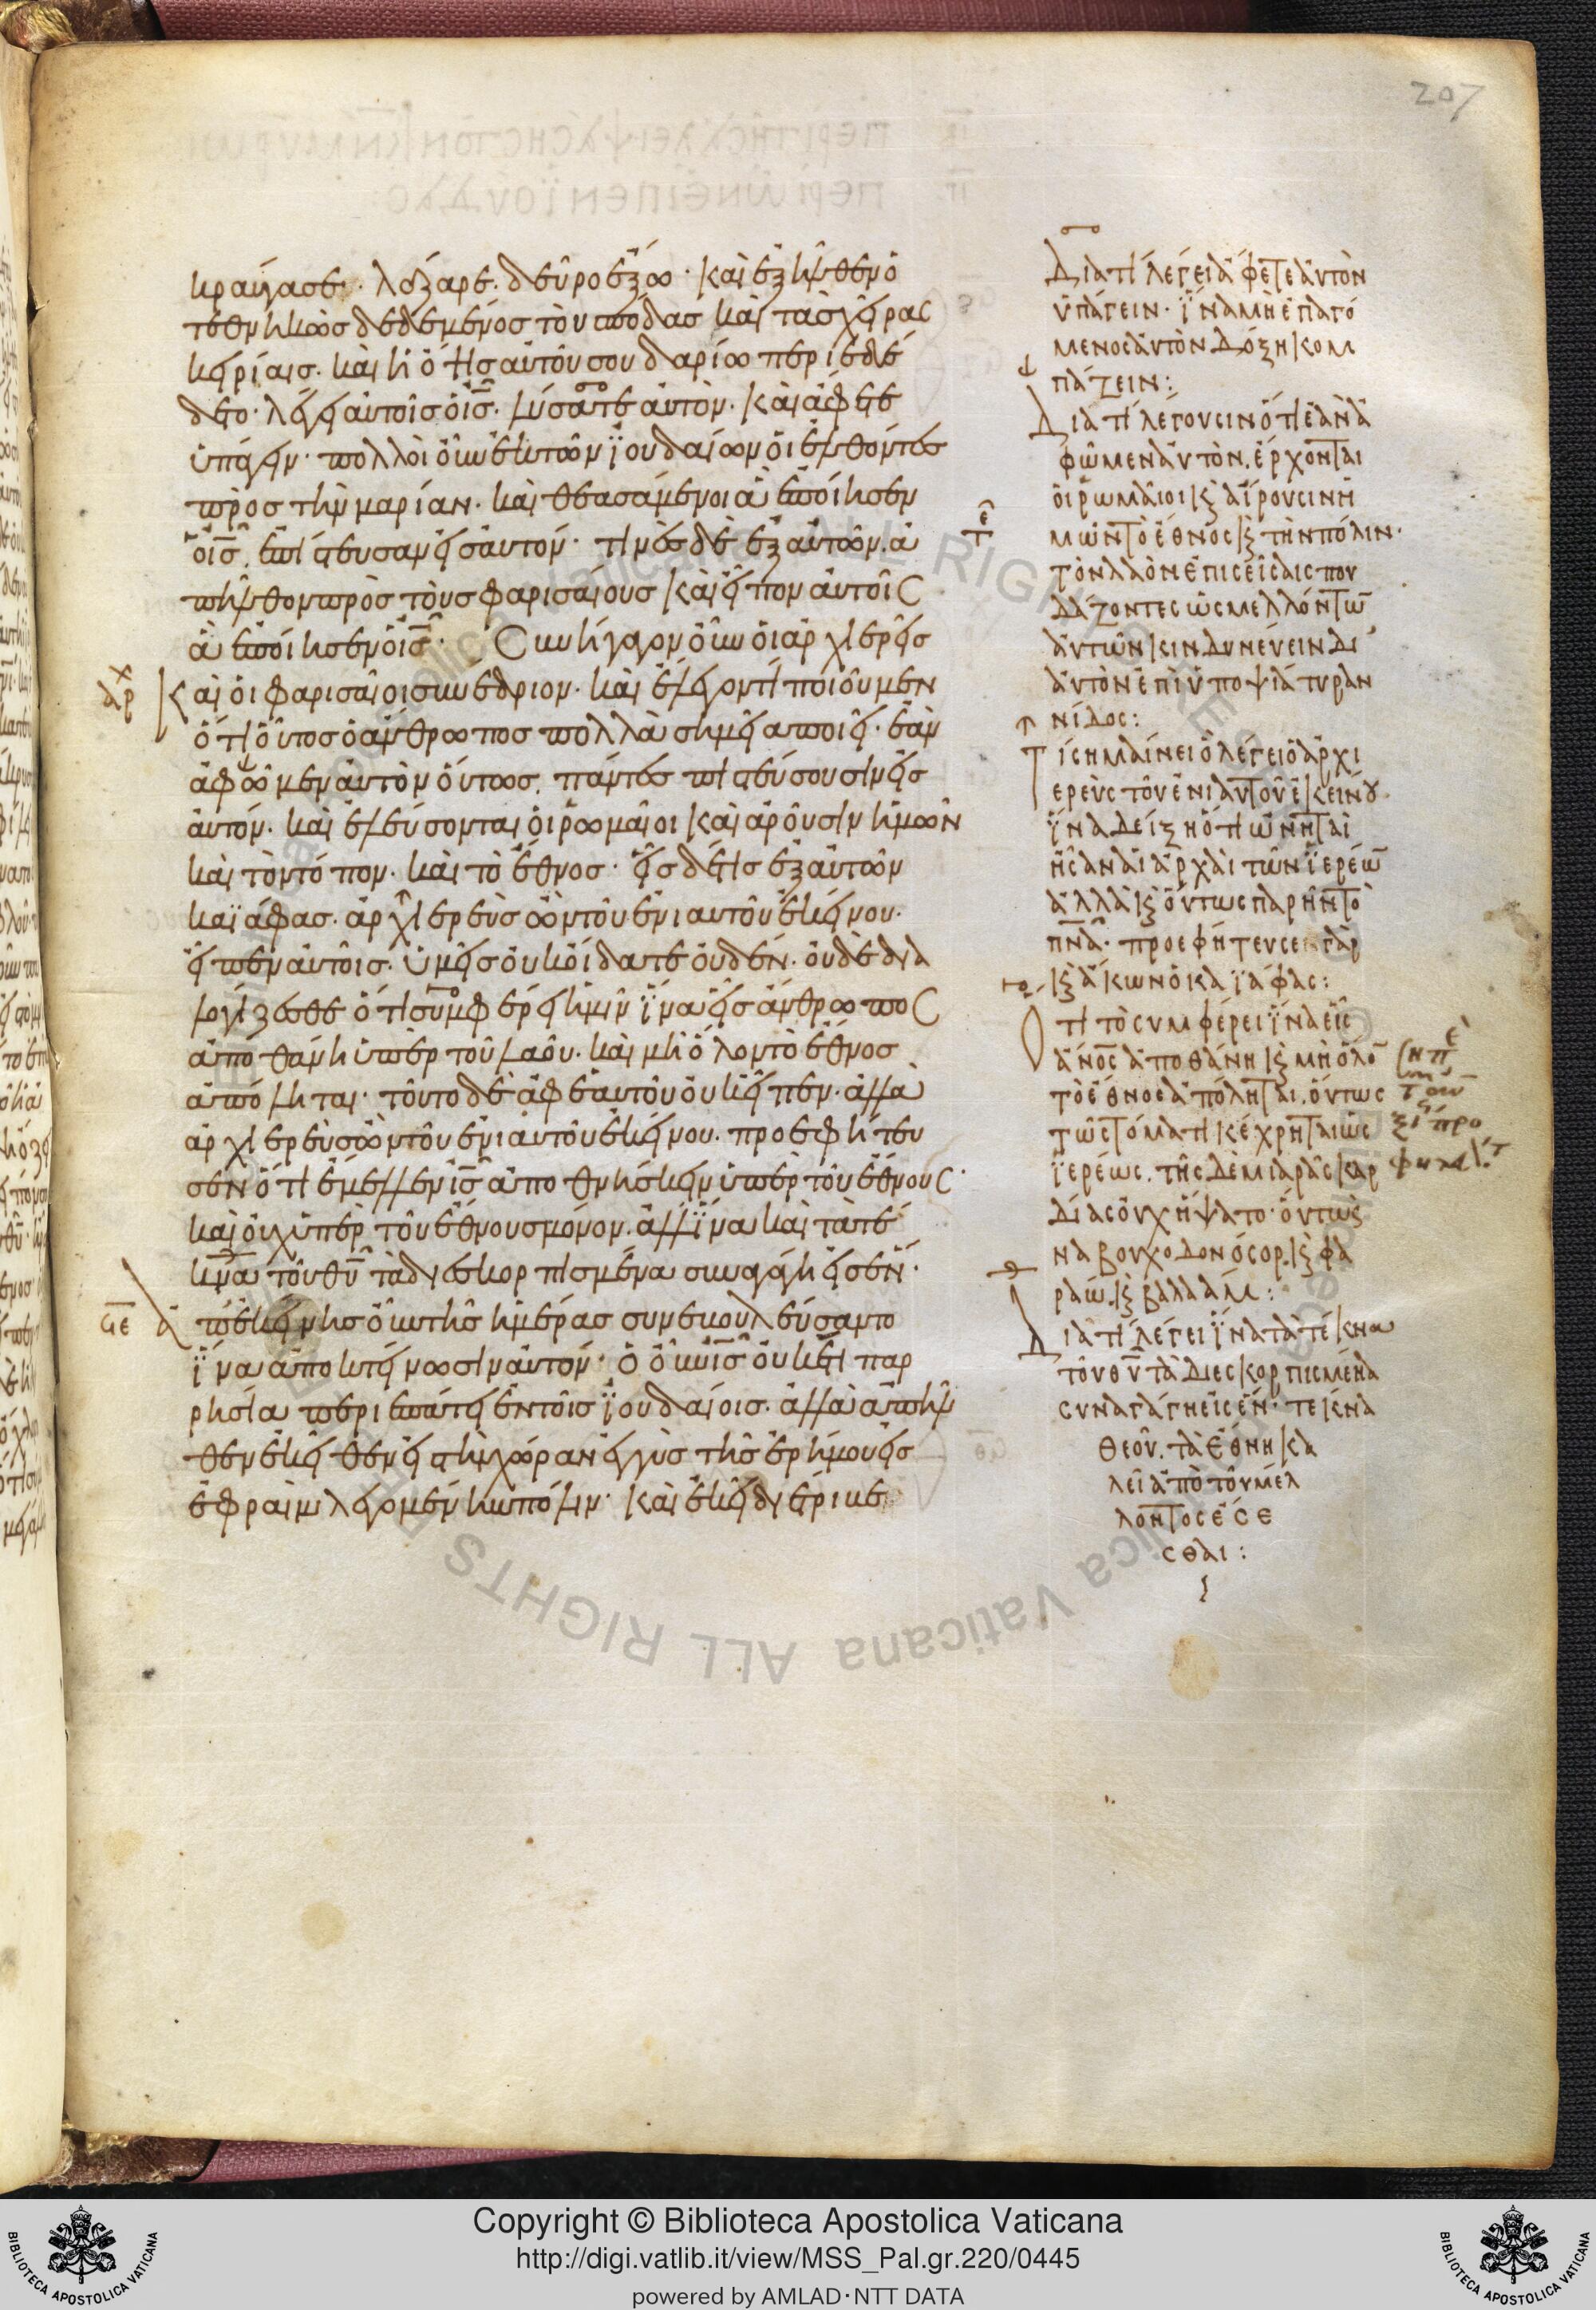 207
κραύγασε· λάζαρε. δεῦρο ἔξω· καὶ ἐξῆλθεν ὁ
τεθνηκὼς δεδεμένος τοὺς πόδας καὶ τὰς χεῖρας
κειρίαις. καὶ ἡ ὄψις αὐτοῦ σουδαρίω περιεδέ
δετο· λέγει αὐτοῖς ὁ ἰς̅. λύσατε αὐτὸν. καὶ ἄφετε
ὑπάγειν· πολλοὶ οὖν ἐκ τῶν ϊουδαίων οἱ ἐλθόντες
πρὸς τὴν μαρίαν. καὶ θεασάμενοι ἃ ἐποίησεν
ὁ ἰς̅. ἐπίστευσαν εἰς αὐτόν· τινὲς δὲ ἐξ αὐτῶν. ἀ
πῆλθον πρὸς τοὺς φαρισαίους καὶ εἶπον αὐτοῖς
ἃ ἐποίησεν ὁ ἰς̅· Συνήγαγον οὖν οἱ ἀρχιερεῖς
καὶ οἱ φαρισαῖοι συνέδριον. καὶ ἔλεγον τί ποιοῦμεν
ὅτι οὗτος ὁ ἄνθρωπος πολλὰ σημεῖα ποιεῖ. ἐὰν
ἀφῶμεν αὐτὸν οὕτως. πάντες πιστεύσουσιν εἰς
αὐτόν. καὶ ἐλεύσονται οἱ ῥωμαῖοι καὶ ἀροῦσιν ἡμῶν
καὶ τὸν τόπον. καὶ τὸ ἔθνος· εἷς δέ τις ἐξ αὐτῶν
καϊάφας. ἀρχιερεὺς ὢν τοῦ ἐνιαυτοῦ ἐκείνου.
εἶπεν αὐτοῖς. ὑμεῖς οὐκ οἴδατε οὐδέν. οὐδὲ δια
λογίζεσθε ὅτι συμφέρει ἡμῖν ἵνα εἷς ἄνθρωπος
ἀποθάνη ὑπὲρ τοῦ λαοῦ. καὶ μὴ ὅλον τὸ ἔθνος
ἀπόληται· τοῦτο δὲ ἀφ ἑαυτοῦ οὐκ εἶπεν. ἀλλὰ
ἀρχιερεὺς ὢν τοῦ ἐνιαυτοῦ ἐκείνου. προεφήτευ
σεν ὅτι ἔμελλεν ἰς̅ ἀποθνήσκειν ὑπὲρ τοῦ ἔθνους·
καὶ οὐχ ὑπὲρ τοῦ ἔθνους μόνον. ἀλλ ἵνα καὶ τὰ τέ
κνα τοῦ θυ̅ τὰ διεσκορπισμένα συναγάγη εἰς ἕν·
ἀπ ἐκείνης οὖν τῆς ἡμέρας συνεβουλεύσαντο
ἵνα ἀποκτείνωσιν αὐτόν· ὁ οὖν ἰς̅ οὐκ ἔτι παρ
ρησία περιεπάτει ἐν τοῖς ϊουδαίοις. ἀλλὰ ἀπῆλ
θεν ἐκεῖθεν εἰς τὴν χώραν ἐγγὺς τῆς ἐρήμου εἰς
ἐφραὶμ λεγομένην πόλιν· καὶ ἐκεῖ διέτριβε
Διατί λέγει ἄφετε αὐτὸν
ὑπάγειν· ἵνα μὴ ἐπαγό
μενος αὐτὸν δόξη κομ
πάζειν:
Διατί λέγουσιν ὅτι ἐὰν ἀ
φῶμεν αὐτὸν. ἔρχονται
οἱ ῥωμαῖοι κ̀ αἴρουσιν ἡ
μῶν τὸ ἔθνος κ̀ τὴν πόλιν·
τὸν λαὸν ἐπισεῖσαι σπου
δάζοντες ὡς μελλόντω̅
αὐτῶν κινδυνεύειν δι
αὐτὸν ἐπὶ ὑποψία τυραν
νίδος:
Τί σημαίνει ὃ λέγει ὁ ἀρχι
ερεὺς τοῦ ἐνιαυτοῦ ἐκείνου
ἵνα δείξη ὅτι ὠνηταὶ
ἦσαν αἱ ἀρχαὶ τῶν ϊερέω̅
ἀλλὰ κ̀ ὄντως παρῆν τὸ
πν̅α· προεφήτευσε γὰρ
κ̀ ἄκων ὁ καϊάφας:
τί τὸ συμφέρει ἵνα εἷς
ἄνο̅ς ἀποθάνη κ̀ μὴ ὅλο̅
τὸ ἔθνος ἀπόληται. ὄντως
τῶ στόματι κέχρηται ὡς
ϊερέως. τῆς δὲ μιαρᾶς καρ
δίας οὐχ ἥψατο· οὕτως
ναβουχοδονόσορ. κ̀ φα
ραώ. κ̀ βαλαάμ:
Διατί λέγει ἵνα τὰ τέκνα
τοῦ θυ̅ τὰ διεσκορπισμένα
συναγάγη εἰς ἕν· τέκνα
θεοῦ. τὰ ἔθνη κα
λεῖ ἀπὸ τοῦ μέλ
λοντος ἔσε
σθαι:
Copyright © Biblioteca Apostolica Vaticana
http://digi.vatlib.it/view/MSS_Pal.gr.220/0445
powered by AMLAD·NTT DATA
BIBLIOTECA APOSTOLICA VATICANA
BIBLIOTECA APOSTOLICA VATICANA